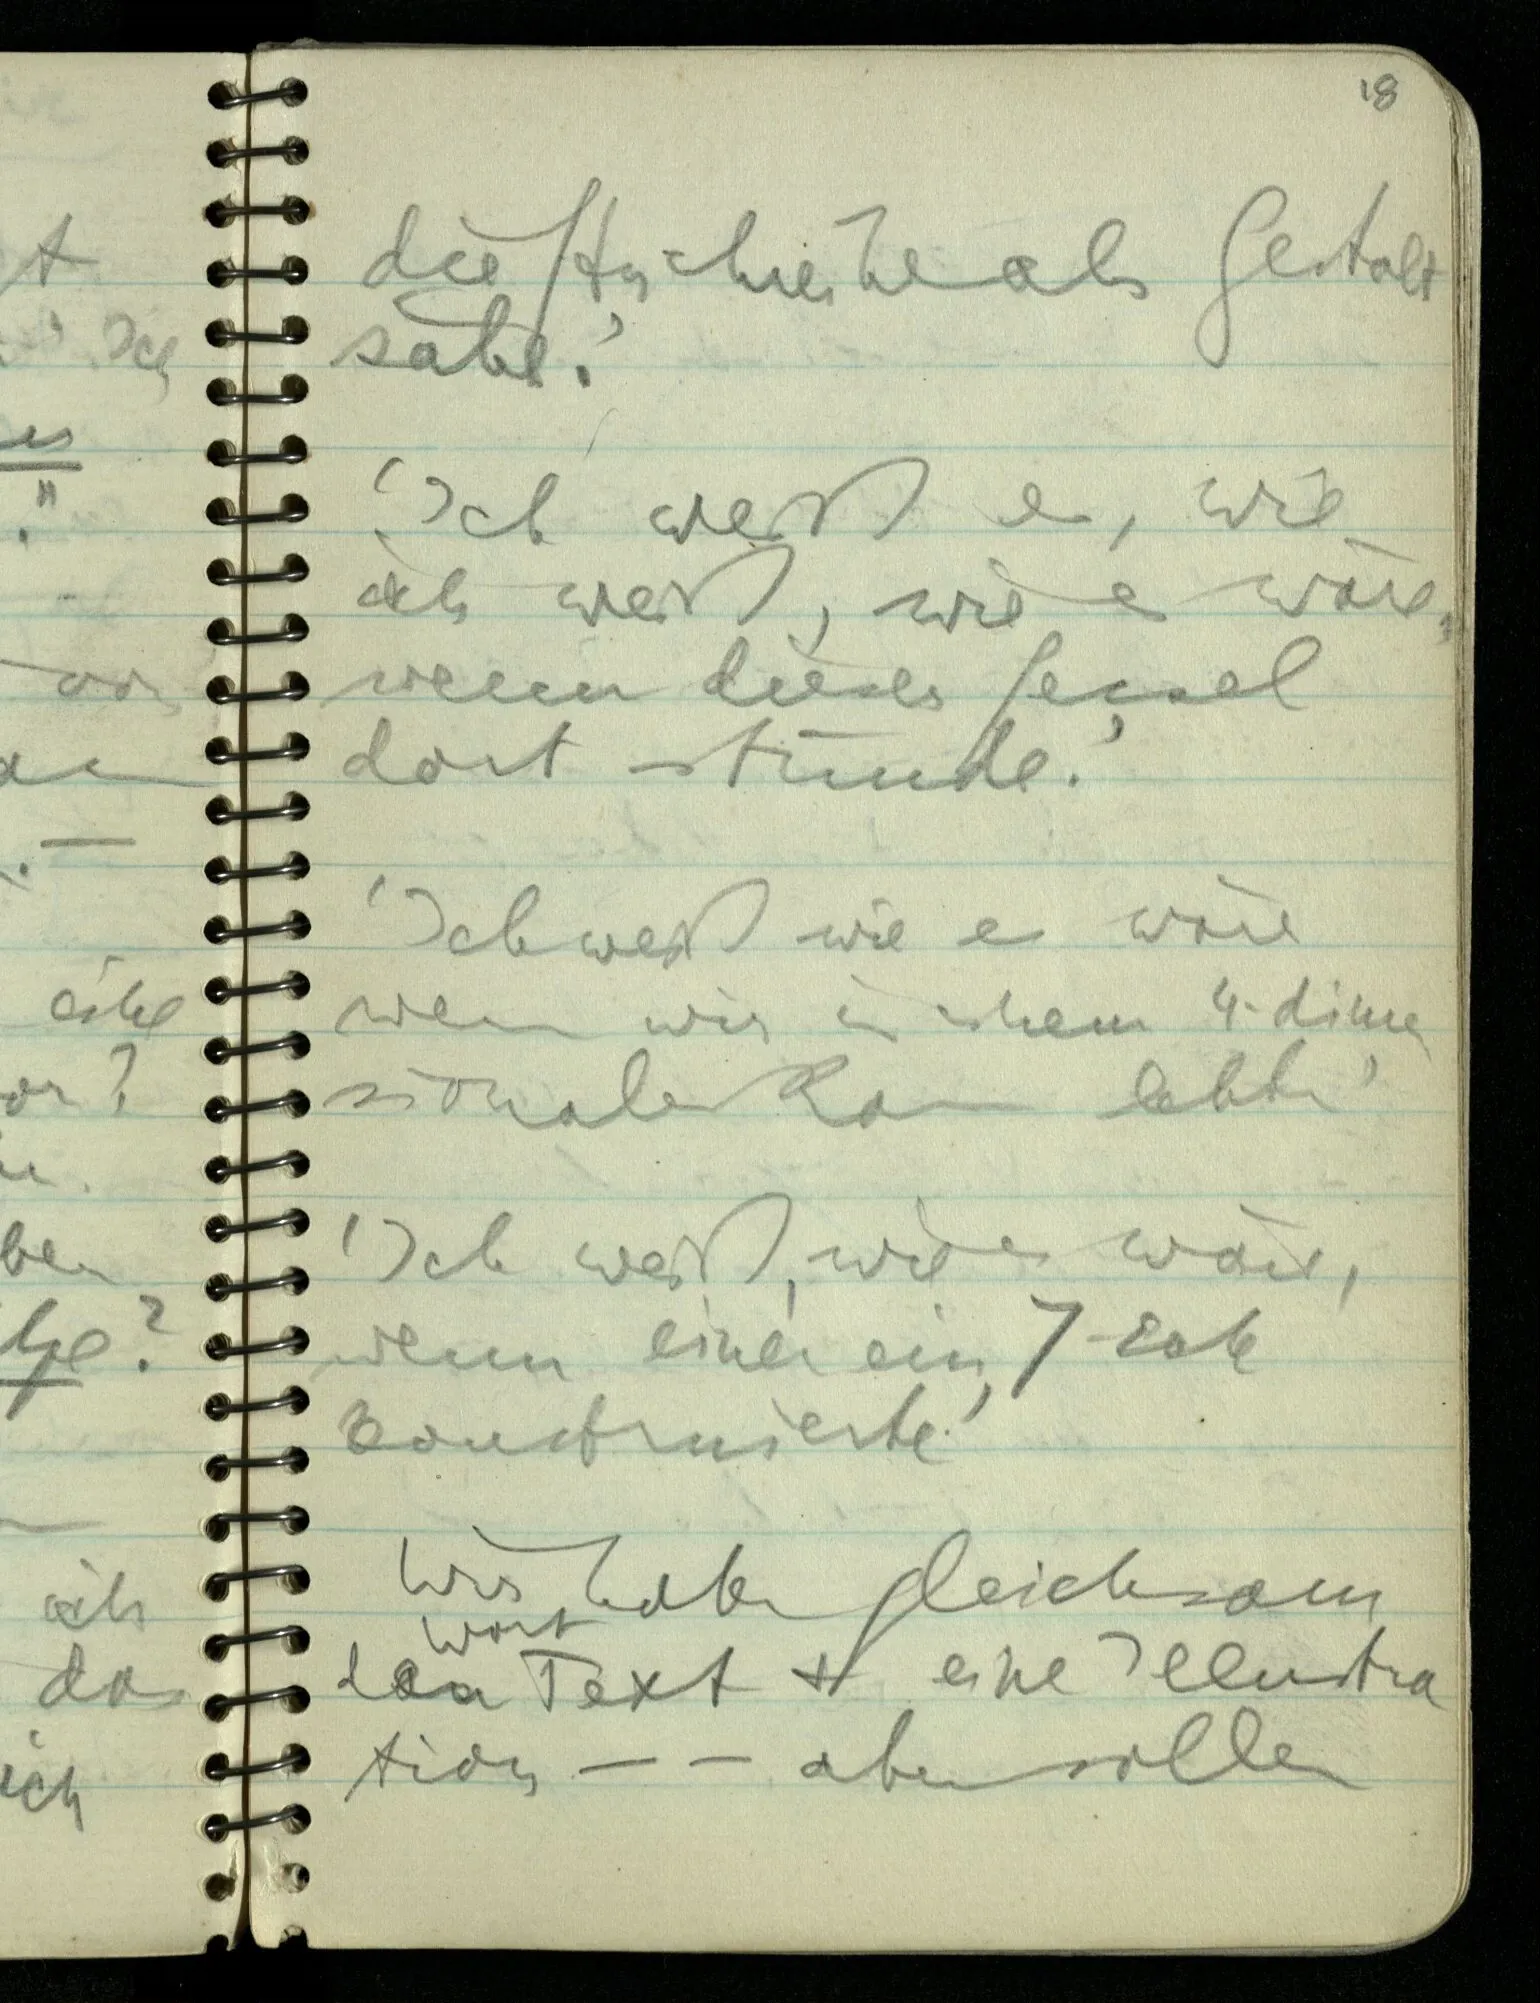 18
die
als Gestalt
sähe.'
'Ich weiß es, wie
ich weiß, wie es wäre,
wenn dieser Sessel
dort stünde.'
'Ich weiß wie es wäre
wenn wir in einem 4-dimen
sionalen Raum lebten'
'Ich weiß, wie es wäre,
wenn einer ein 7-Eck
konstruierte.'
Wir haben gleichsam
Wort
den Text + eine Illustra
tion — — aber sollen
t
Ich
es
."
.—
eine
or?
ben
?
ich
das
ich